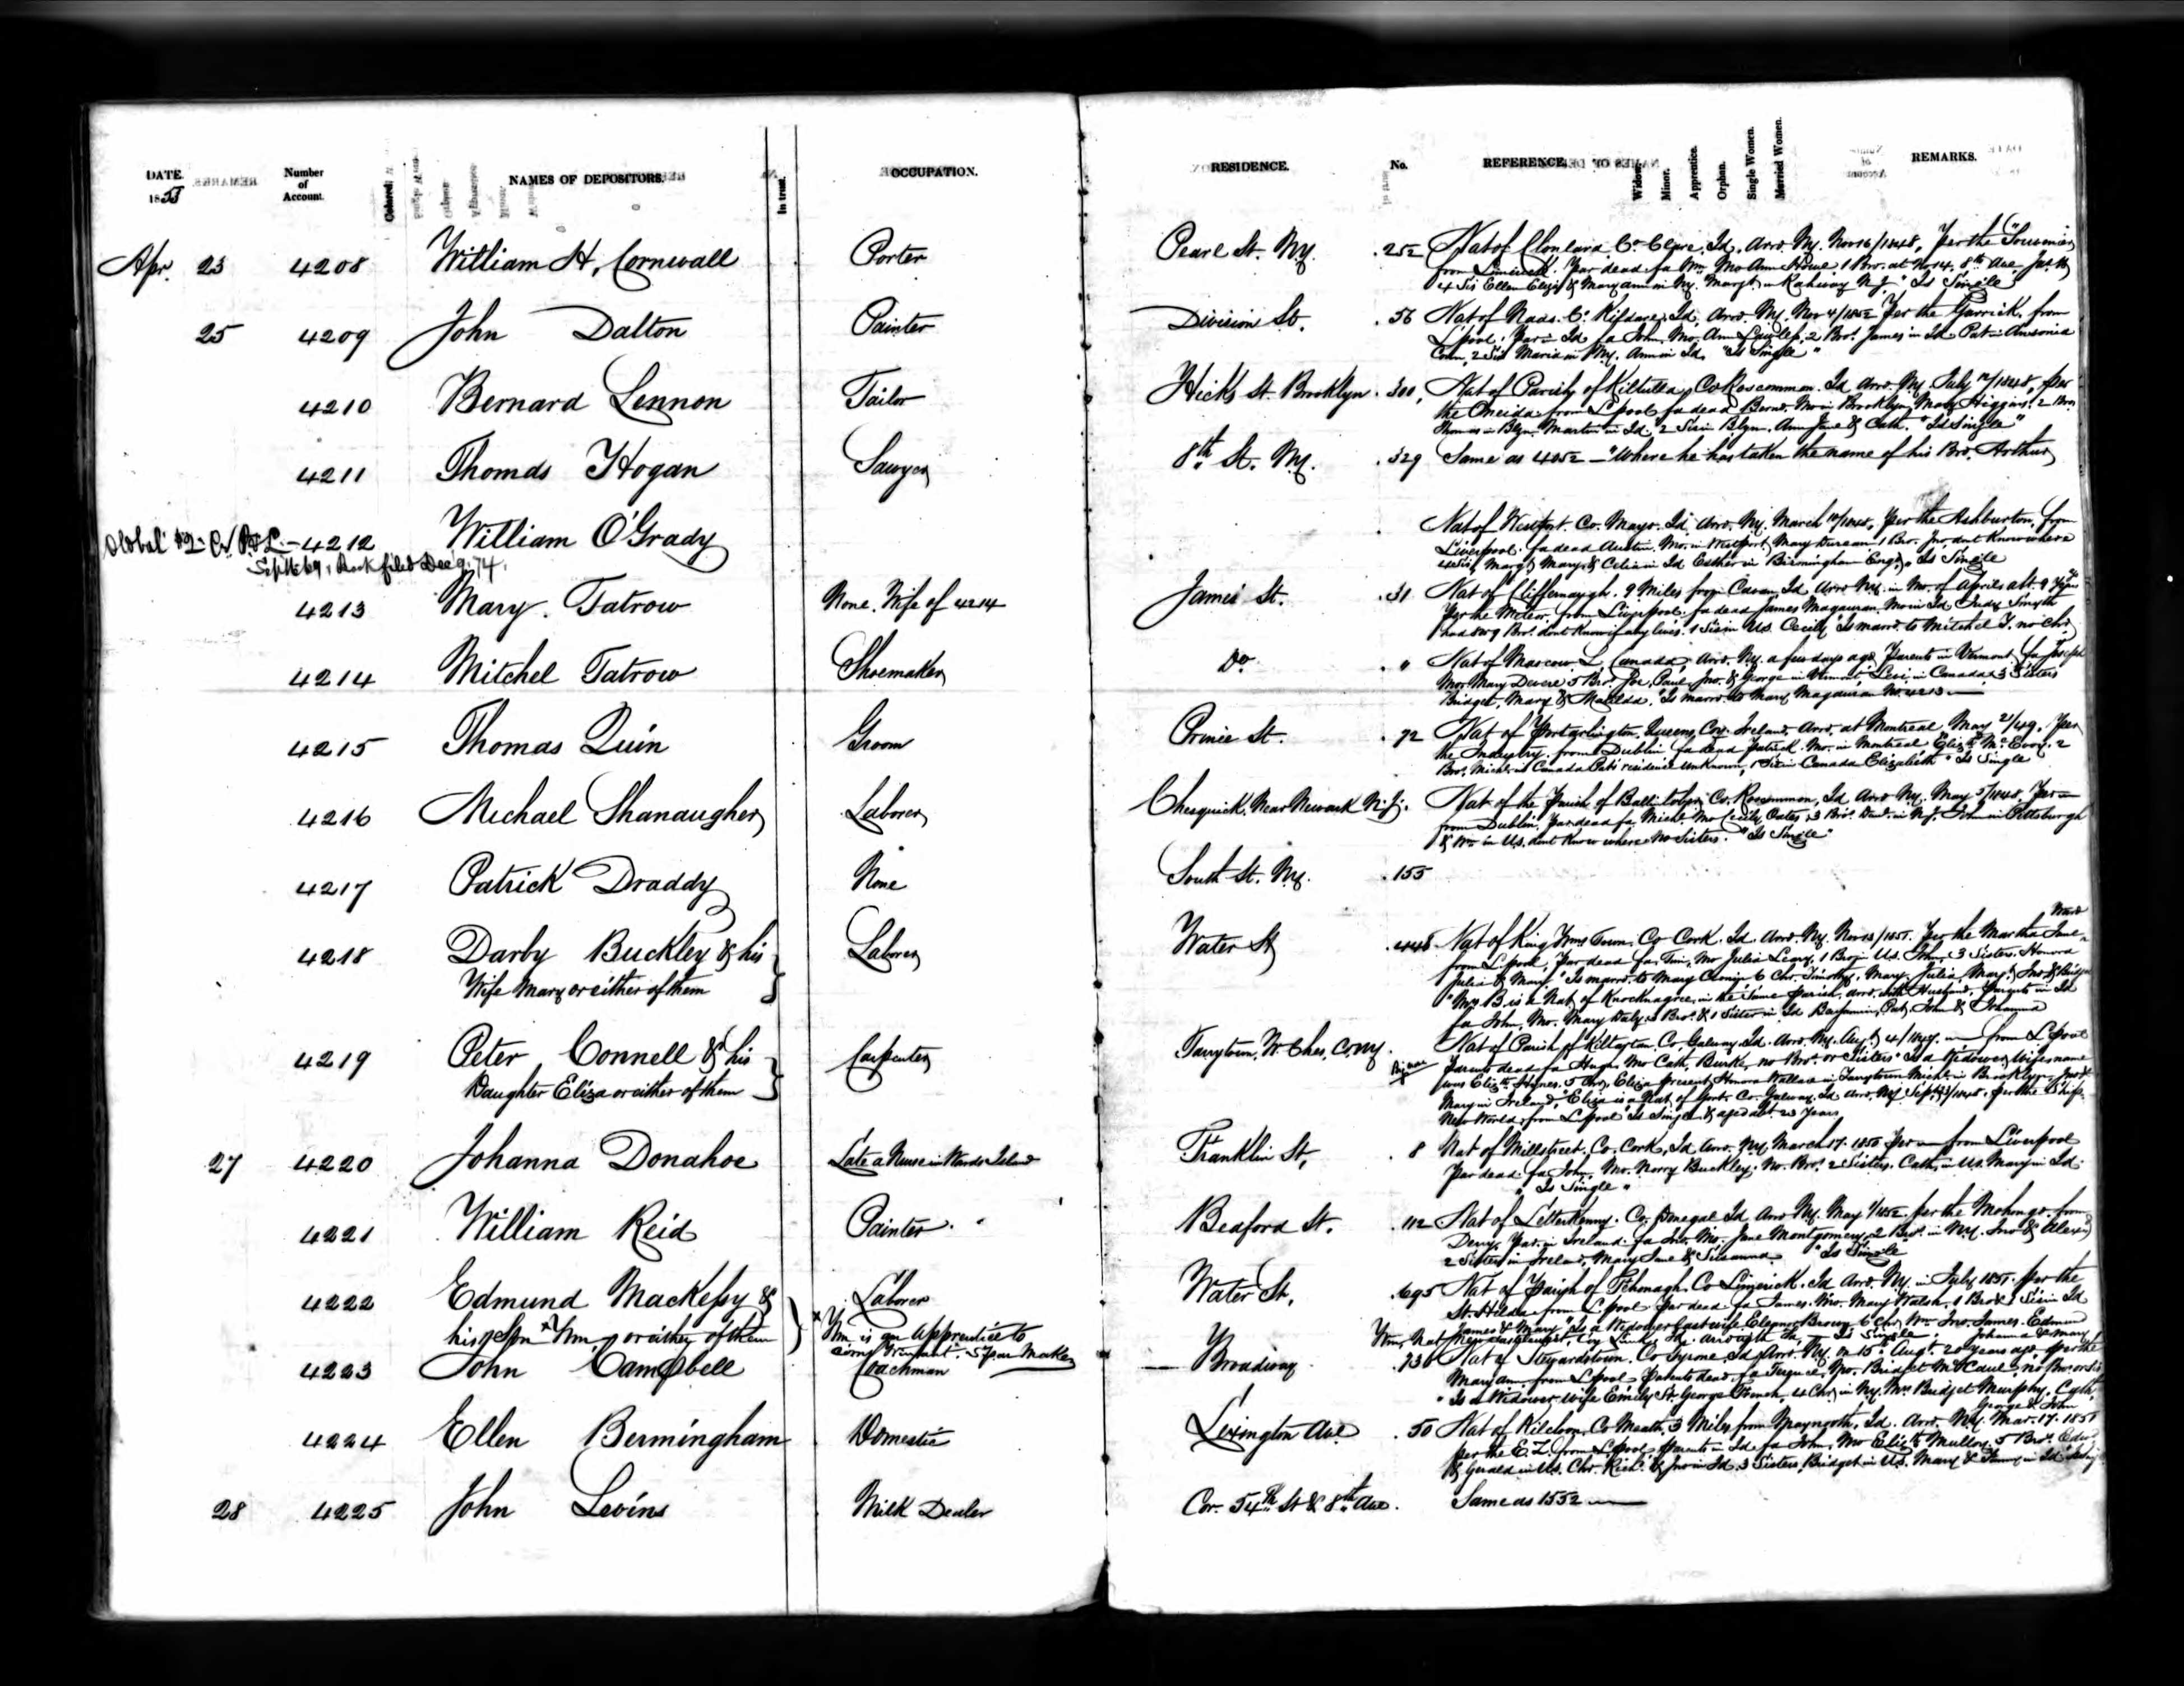 DATE.
1855
Number
of
Account.
Colored.
NAMES OF DEPOSITORS.
In trust.
OCCUPATION.
RESIDENCE.
No.
REFERENCE.
Widow.
Minor.
Apprentice.
Orphan.
Single Women.
Married Women.
REMARKS.
Apr. 23 4208 William H. Cornwall Porter Pearl St. NY. 252 Nat of Clonlara Co. Clare, Id. Arrd. NY. Nov 16/1848, per the
from Limerick. Par dead fa Wm Mo Ann Howe 1 Bro. at No 14. 8th Ave Jas. H
4 Sis Ellen Eliza & Mary ann in Ny. Margt in Rahway N.J. "Is Single"
25 4209 John Dalton Painter Division St. 56 Nat of Naas. Co. Kildare, Id. Arrd. NY. Nov 4/1852 Per the Garrick, from
L'pool. Par in Id fa John, Mo. Ann Lawless, 2 Bro. James in Id Pat in Ansonia
Conn, 2 Sis Maria in NY. Ann in Id, "Is Single"
4210 Bernard Lennon Tailor Hicks St. Brooklyn 300, Nat of Parish of Kiltulla, Co Roscommon. Id. Arrd. NY July 12/1848, per
the Oneida from L'pool fa dead Bernd. Mo in Brooklyn Mary Higgins. 2 Bros
Thomas in Blyn Martin in Id. 2 Sis in Blyn. Ann Jane & Cath. "Is Single"
4211 Thomas Hogan Sawyer 8th St. NY. 329 Same as 4052 — "Where he has taken the name of his Bro. Arthur
4212 William O'Grady Nat of Westport. Co. Mayo. Id. Arrd. NY. March per the Ashburton, from
Sept 16/69, Dec 9. 74. Liverpool. fa dead Austin, Mo. in Westport, Mary Durcan 1 Bro. Jno, dont know where
4 Sis Margt Mary & Celia in Id Esther in Birmingham Eng. "Is Single
4213 Mary. Tatrow None. Wife of 4214 James St. 31 Nat of 9 Miles from Cavan, Id Arrd NY. in Mo. of April abt 9 Years
Per the Meteor, from Liverpool. fa dead James Magauran. Mo in Id Judy Smyth
had 8 or 9 Bro. dont know if any lives. 1 Sis in US. Cecily "Is marrd. to Mitchel T. no Chr.
4214 Mitchel Tatrow Shoemaker Do " Nat of L. Canada, Arrd. NY. a few days ago Parents in Vermont fa Joseph
Mo. Mary 5 Bro. Joe, Paul, Jno. & George in Vermont, Levi in Canada 3 Sisters
Bridget, Mary & Matilda, "Is marrd. to Mary Magauran No. 4213 —
4215 Thomas Quin Groom Prince St. 72 Nat of Portarlington, Queens Co. Ireland. Arrd. at Montreal May 21/49. Per
the Industry. from Dublin fa dead Patrick. Mo. in Montreal Elizth McEvoy. 2
Bro. Michl. in Canada Pat's residence unknown, 1 Sis in Canada Elizabeth "Is Single
4216 Michael Shanaugher Laborer Chesquick. Near Newark N.J. Nat of the Parish of Co. Roscommon, Id Arrd NY. May 5/1848. Per —
from Dublin. Par dead fa. Michl. Mo Cecily Oates, 3 Bro. in NJ. John in Pittsburgh
& Wm in U.S. dont know where No Sisters. "Is Single"
4217 Patrick Draddy None South St. NY. 155
4218 Darby Buckley & his Laborer Water St 448 Nat of King Wms Town. Co Cork. Id. Arrd. NY. Nov 13/1851. Per the Martha Jane
Wife Mary or either of them from L'pool, Par dead fa. Tim, Mo Julia Leary. 1 Bro in US. John, 3 Sisters. Honora
Julia & Mary "Is marrd. to Mary 6 Chr. Timothy, Mary, Julia, Mary, Jno & Bridget
"Mrs. B is a Nat of Knocknagree, in the same parish, arrd. with Husband. Parents in Id
fa John, Mo. Mary Daly 3 Bro. & 1 Sister in Id Benjamin, Pat, John & Johanna
4219 Peter Connell & his Carpenter Tarrytown, W. Ches, Co, NY. Nat of Parish of Kiltartan, Co Galway Id. Arrd. NY. Aug. 4/1849. — from L'pool
Daughter Eliza or either of them Parents dead fa Hugh. Mo Cath. Burke, no Bro. or Sisters "Is a Widower, Wifes name
was Elizth Hynes. 5 Chr. Eliza present, Honora Wallace in Tarrytown Michl. in Brooklyn, Jno &
Mary in Ireland, Eliza is a Nat of Gort. Co. Galway. Id Arrd. NY Sept per the Ship
New World, from L'pool Is Single & aged abt 23 years
27 4220 Johanna Donahoe Late a Nurse in Wards Island Franklin St, 8 Nat of Millstreet, Co. Cork, Id Arrd. NY, March 17. 1850 Per — from Liverpool
Par dead fa John, Mo. Norry Buckley, No. Bro. 2 Sisters. Cath. in US. Mary in Id
"Is Single"
4221 William Reid Painter Bedford St. 112 Nat of Letterkenny. Co. Donegal Id Arrd NY. May 1/1852. per the Mohongo, from
Derry. Par. in Ireland. fa Jno. Mo. Jane Montgomery. 2 Bro. in NY. Jno & Alexr
2 Sisters in Ireland, Mary Jane & Susanna. "Is Single
4222 Edmund Mackessy & Laborer Water St. 695 Nat of Parish of Co Limerick. Id Arrd. NY. in July 1851. per the
his Son *Wm, or either of them *Wm is an Apprentice to St. Hilda from L'pool Par dead fa James. Mo. Mary Walsh. 1 Bro & 1 Sis in Id
James & Mary "Is a Widower Last wife Eleanor 6 Chr Wm Jno. James. Edmund
Johanna & Mary
4223 John Campbell Coachman — Broadway 736 Nat of Stewardstown. Co Tyrone, Id, Arrd. NY. on 15th Augt. 20 years ago, per the
Mary ann, from L'pool Parents dead. fa Mo. Bridget McCaul, no Bro or Sis
"Is a Widower, wife Emily St. George 4 Chr in NY. Mrs. Bridget Murphy, Cath,
George & John
4224 Ellen Bermingham Domestic Lexington Ave 50 Nat of Kilcloon, Co Meath, 3 Miles from Maynooth, Id. Arrd. NY. Mar. 17. 1851
per the E. Z. from L'pool, Parents in Id fa John, Mo Elizth Mulloy. 5 Bro. Edwd
& Gerald in U.S. Chr. Richd. & Jno in Id. 3 Sisters, Bridget in U.S. Mary & in Id
28 4225 John Levins Milk Dealer Cor. 54th St & 8th Ave. Same as 1552 —